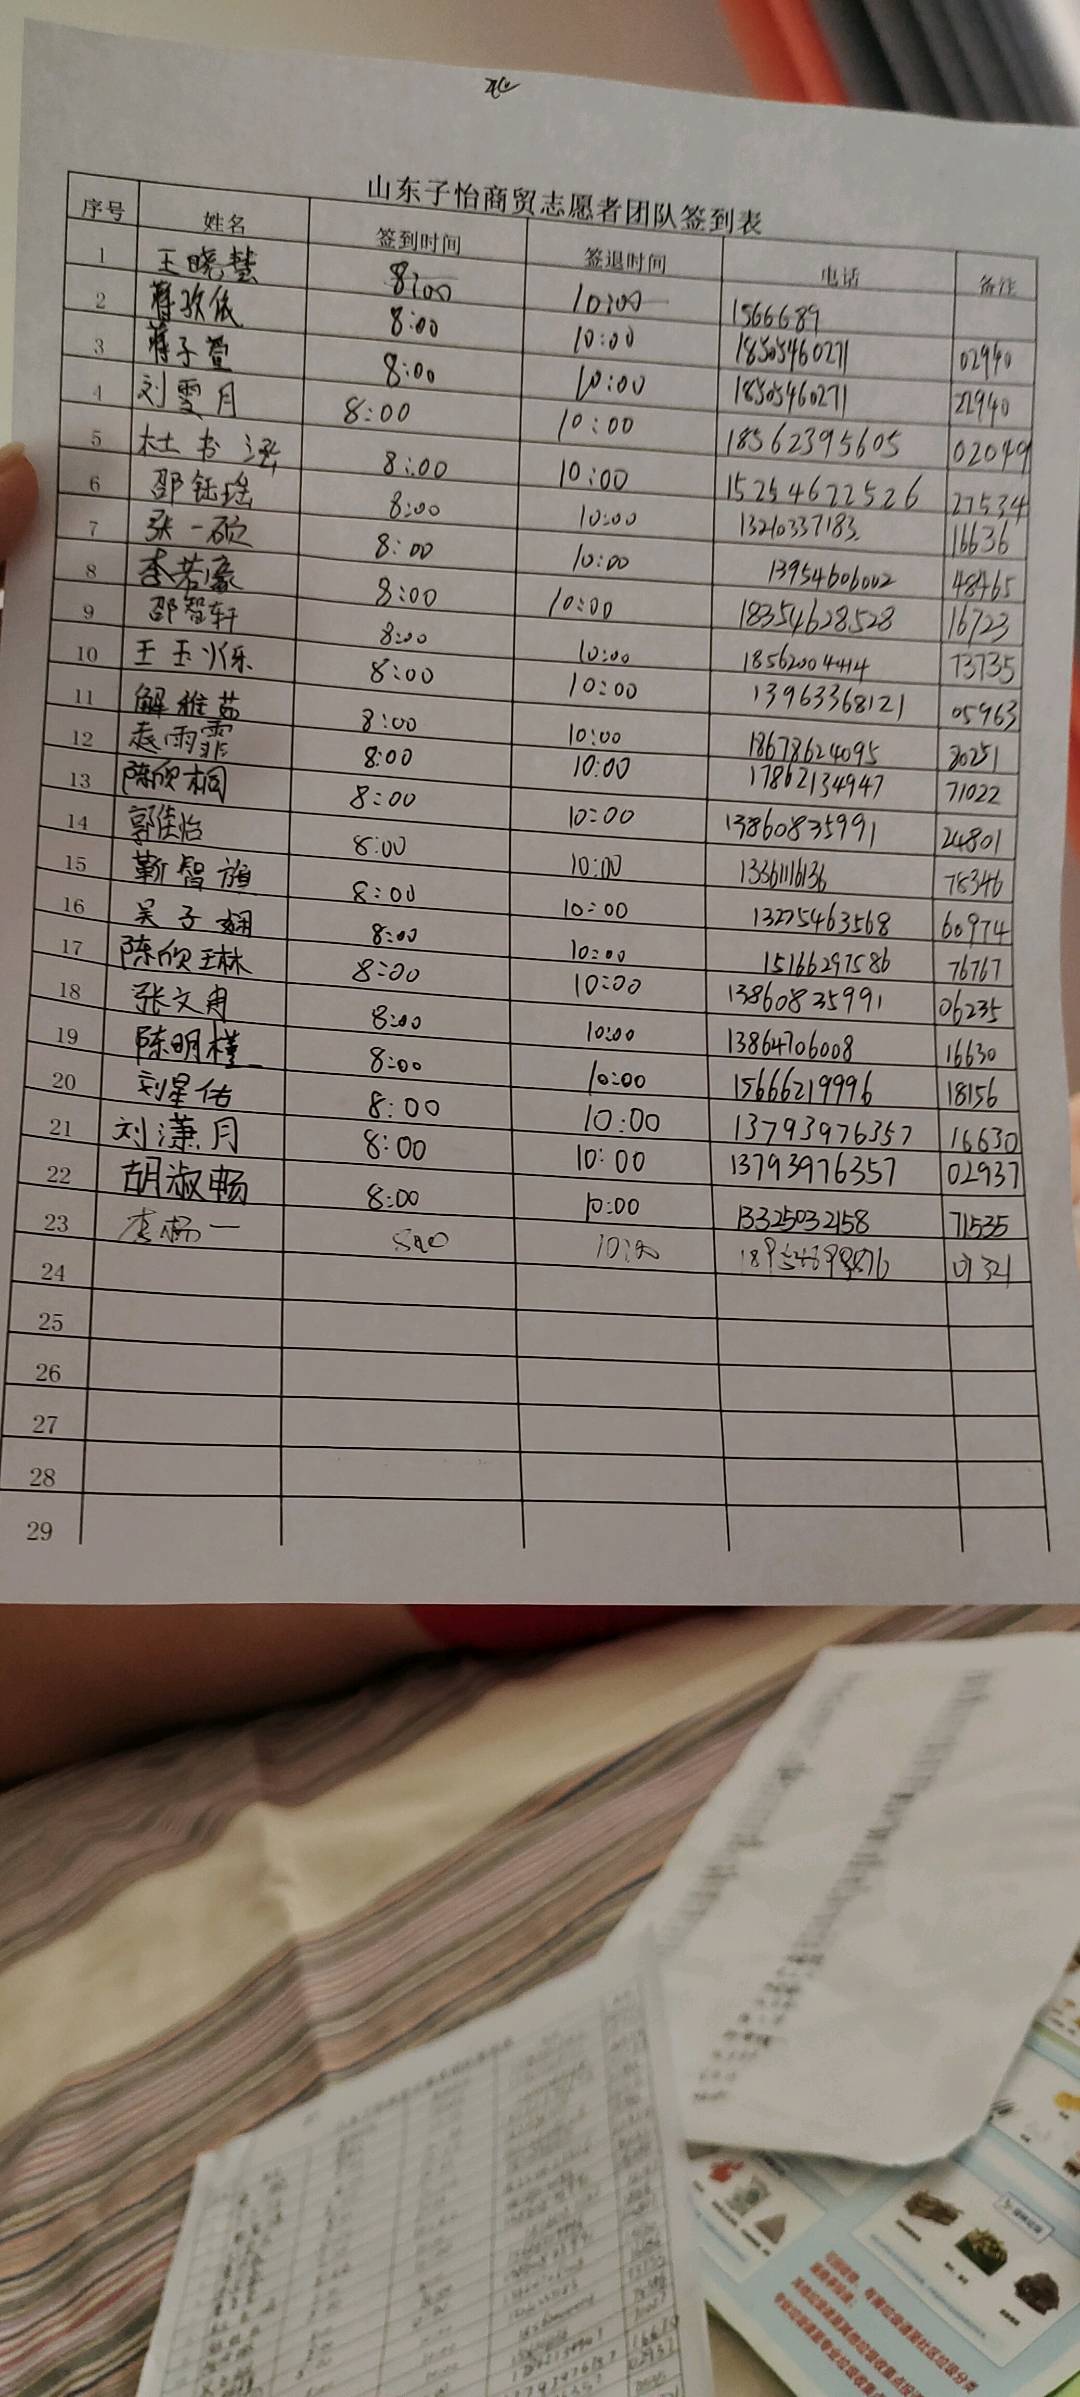 山东子怡商贸志愿者团队签到表
序号 姓名 签到时间 签退时间 电话 备注
1 王晓慧 8:00 10:00 1566689
2 蒋孜依 8:00 10:00 18505460271 02940
3 蒋子萱 8:00 10:00 18505460271 22940
4 刘雯月 8:00 10:00 18562395605 02049
5 杜书涵 8:00 10:00 15254622526 27534
6 邵钰瑶 8:00 10:00 13210337183 16636
7 张一硕 8:00 10:00 13954606002 48465
8 李若豪 8:00 10:00 18354628528 16723
9 邵智轩 8:00 10:00 18562004414 73735
10 王玉烁 8:00 10:00 13963368121 05963
11 解雅茹 8:00 10:00 18678624095 80251
12 袁雨霏 8:00 10:00 17862134947 71022
13 陈欣桐 8:00 10:00 13860835991 24801
14 郭佳怡 8:00 10:00 13361116136 78346
15 靳智旗 8:00 10:00 13275463568 60974
16 吴子娴 8:00 10:00 15166297586 76767
17 陈欣琳 8:00 10:00 13860835991 06235
18 张文冉 8:00 10:00 13864706008 16630
19 陈明槿 8:00 10:00 15666219996 18156
20 刘星佑 8:00 10:00 13793976357 16630
21 刘潇月 8:00 10:00 13793976357 02937
22 胡淑畅 8:00 10:00 13325032158 71535
23 李杨一
24
25
26
27
28
29